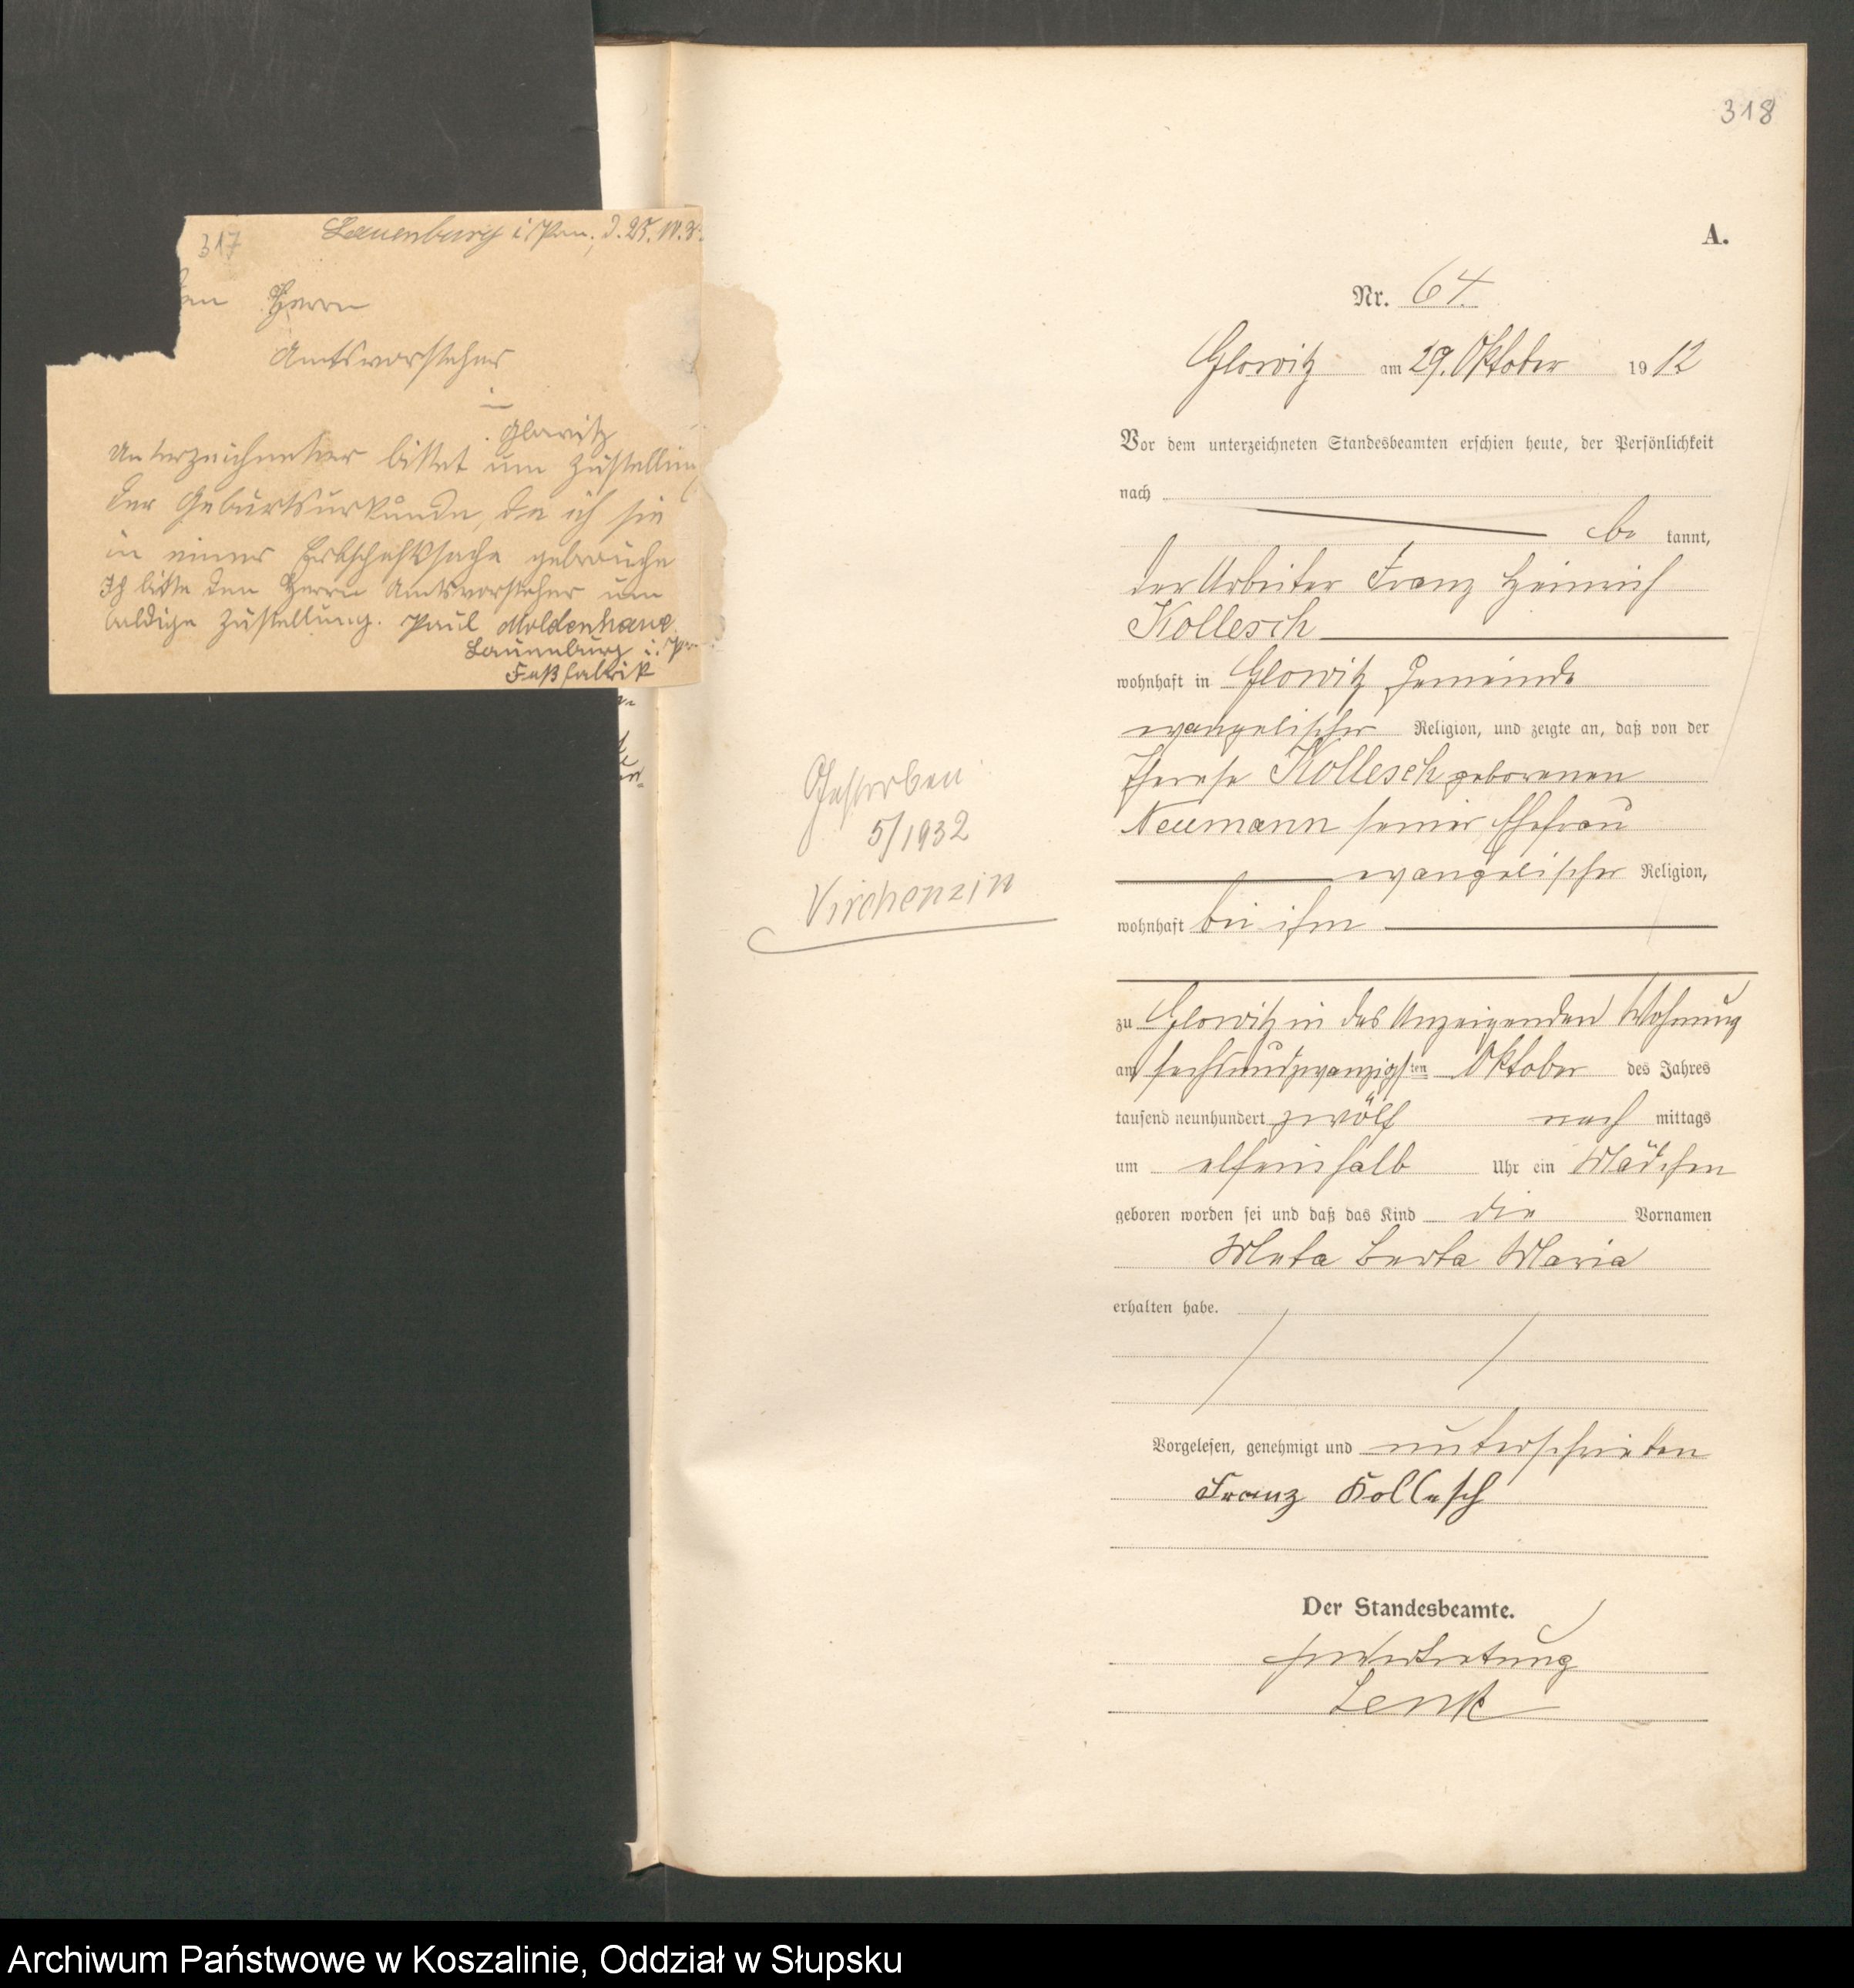 317
Lauenburg i/Pom., d. 25. 11. 3
den Herrn
Amtsvorsteher
in
Glowitz
Unterzeichneter bittet um Zustellung
der Geburtsurkunde, da ich sie
in einer Erbschaftsache gebrauche
Ich bitte den Herrn Amtsvorsteher um
baldige Zustellung. Paul Moldenhaue
Lauenburg i. Pom
Faßfabrik
318
A.
Nr. 64.
Glowitz am 29. Oktober 1912
Vor dem unterzeichneten Standesbeamten erschien heute, der Persönlichkeit
nach
be kannt,
der Arbeiter Franz Heinrich
Kollesch
wohnhaft in Glowitz Gemeinde
evangelischer Religion, und zeigte an, daß von der
Therese Kollesch geborenen
Neumann seiner Ehefrau
evangelischer Religion,
wohnhaft bei ihm
zu Glowitz in des Anzeigenden Wohnung
am sechsundzwanzigsten Oktober des Jahres
tausend neunhundert zwölf nach mittags
um elfeinhalb Uhr ein Mädchen
geboren worden sei und daß das Kind die Vornamen
Meta Berta Maria
erhalten habe.
Vorgelesen, genehmigt und unterschrieben
Franz Kollesch
Der Standesbeamte.
In Vertretung
Lenk
Gestorben
5/1932
Virchenzin
Archiwum Państwowe w Koszalinie, Oddział w Słupsku